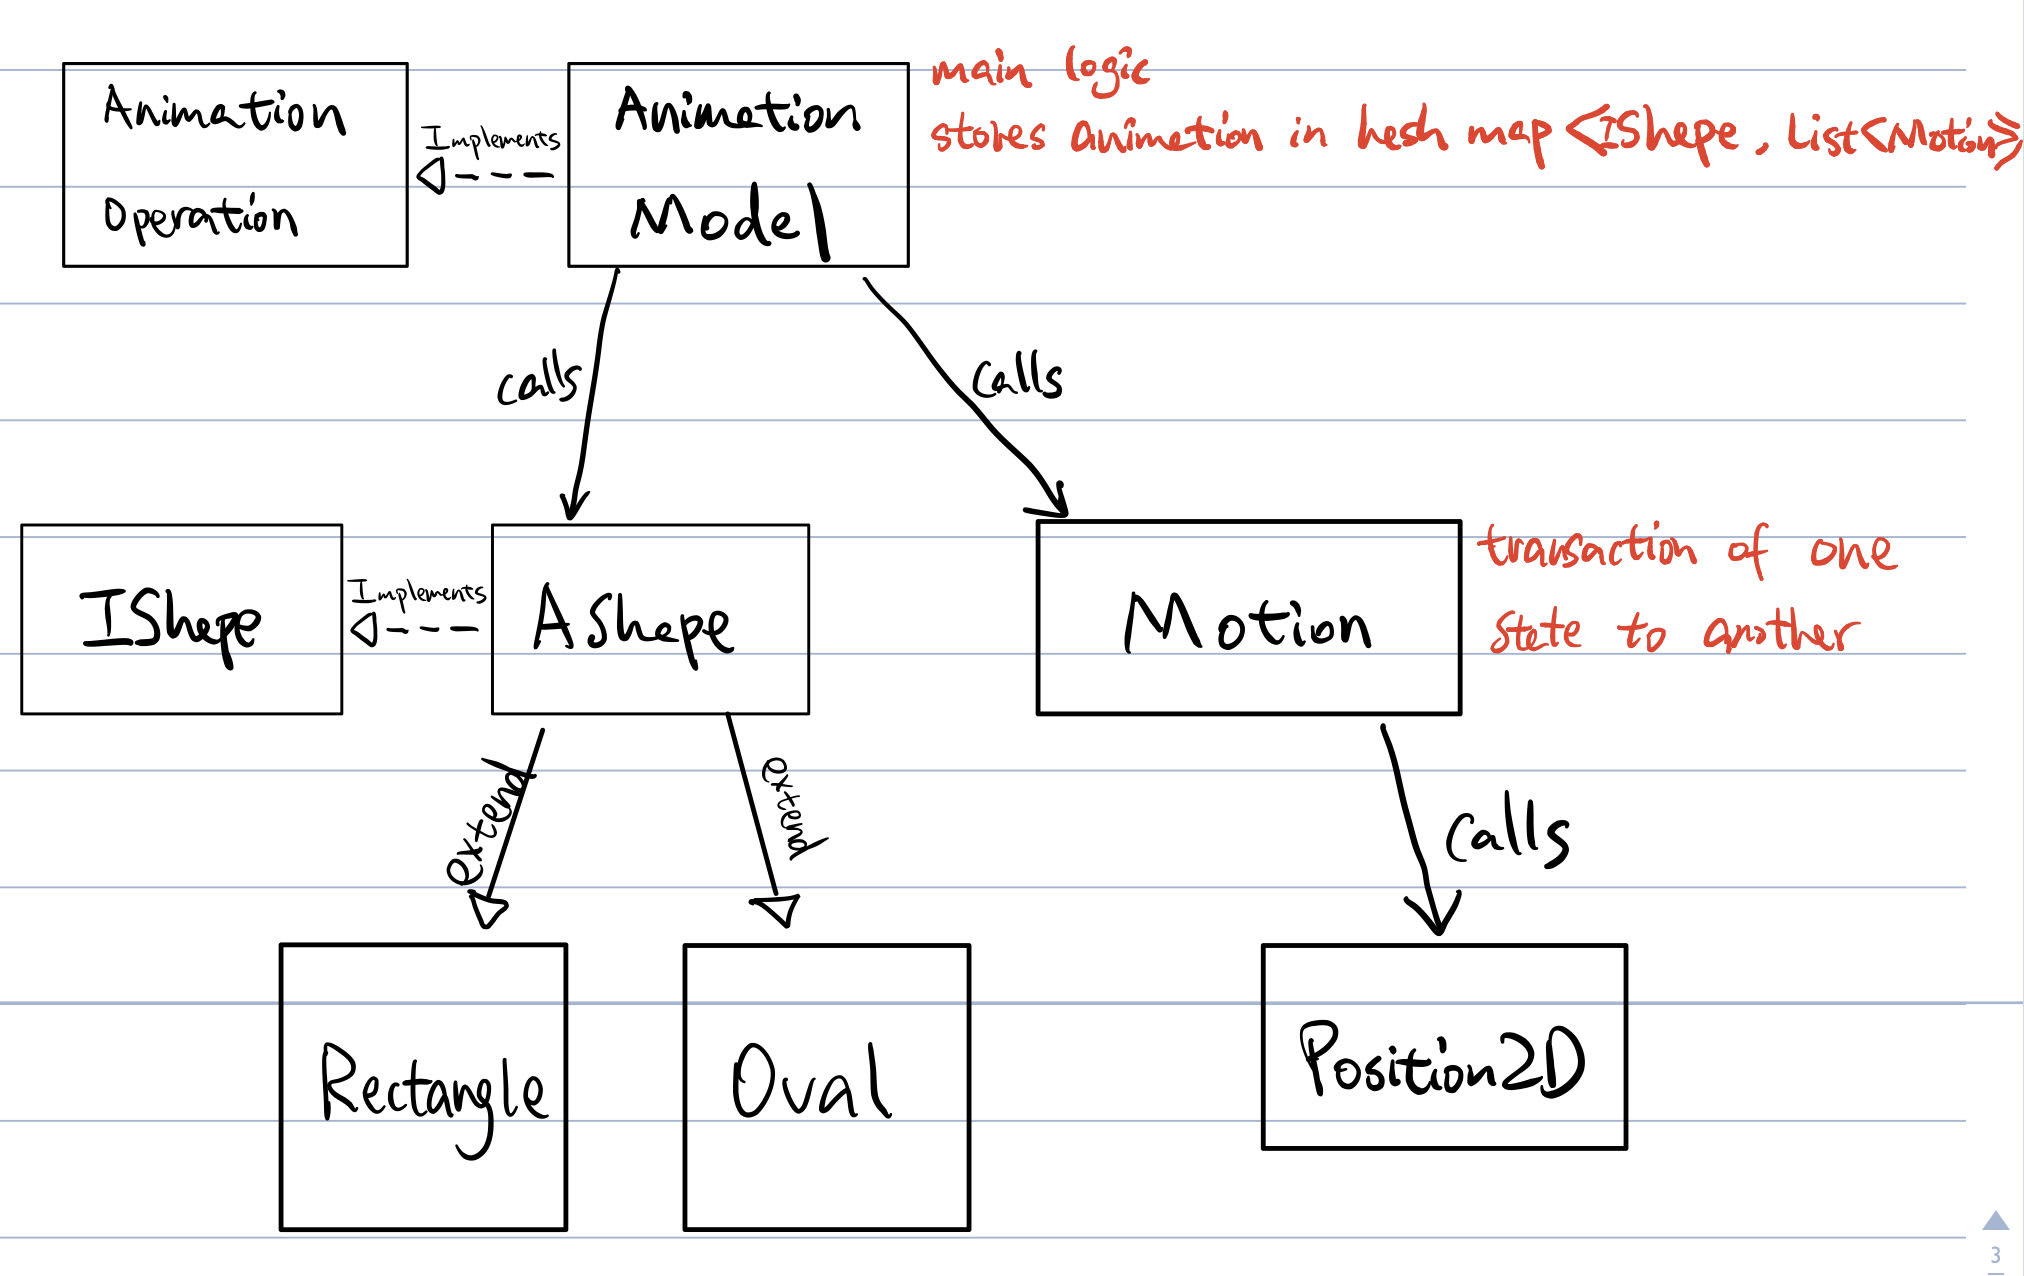 Animation
Operation
Implements
Animation
Model
main logic
stores animation in hesh map <IShepe, List<Motion>>
calls
calls
IShepe
Implements
AShepe
Motion
transaction of one
stete to another
extend
extend
calls
Rectangle
Oval
Position2D
3